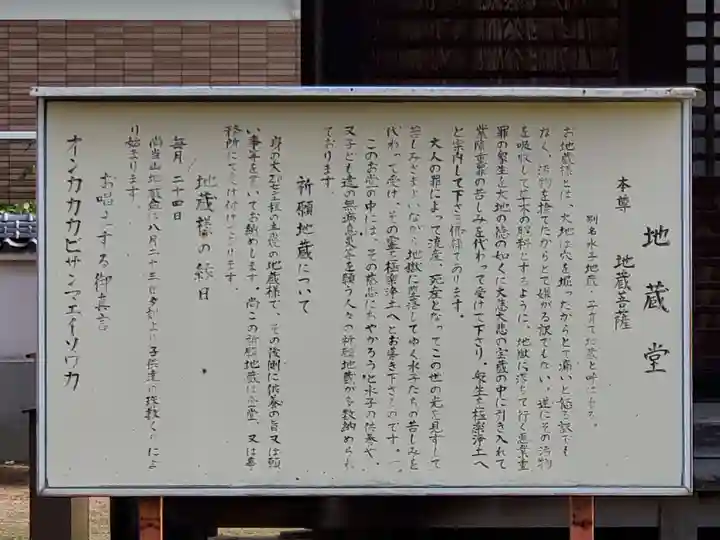 地蔵堂
本尊 地蔵菩薩
別名水子地蔵・子育て地蔵と呼ばれる。
お地蔵様とは、大地は穴を掘ったからとて痛いと怒る訳でも
なく、汚物を捨てたからとて嫌がる訳でもない、逆にその汚物
を吸収して草木の肥料とするように、地獄に落ちて行く悪業重
罪の衆生を大地の徳の如くに大慈大悲の宝蔵の中に引き入れて
業障重罪の苦しみを代わって受けて下さり、衆生を極楽浄土へ
と案内して下さる仏様であります。
大人の罪によって流産、死産となってこの世の光を見ずして
苦しみさまよいながら地獄に堕落してゆく水子たちの苦しみを
代わって受け、その霊を極楽浄土へとお導き下さるのです。
このお堂の中には、その慈悲にあやかろうと水子の供養や、
又子ども達の無病息災等を願う人々の祈願地蔵が多数納められ
ております。
祈願地蔵について
身の丈 程の立像の地蔵様で、その後側に供養の旨又は願
い事等を書いてお納めします。尚この祈願地蔵は念堂、又は事
務所にて受け付けております。
地蔵様の縁日
毎月 二十四日
尚当山地蔵盆は八月二十三日夕刻より子供達の珠数くりによ
り始まります。
お唱えする御真言
オンカカカビサンマエイソワカ